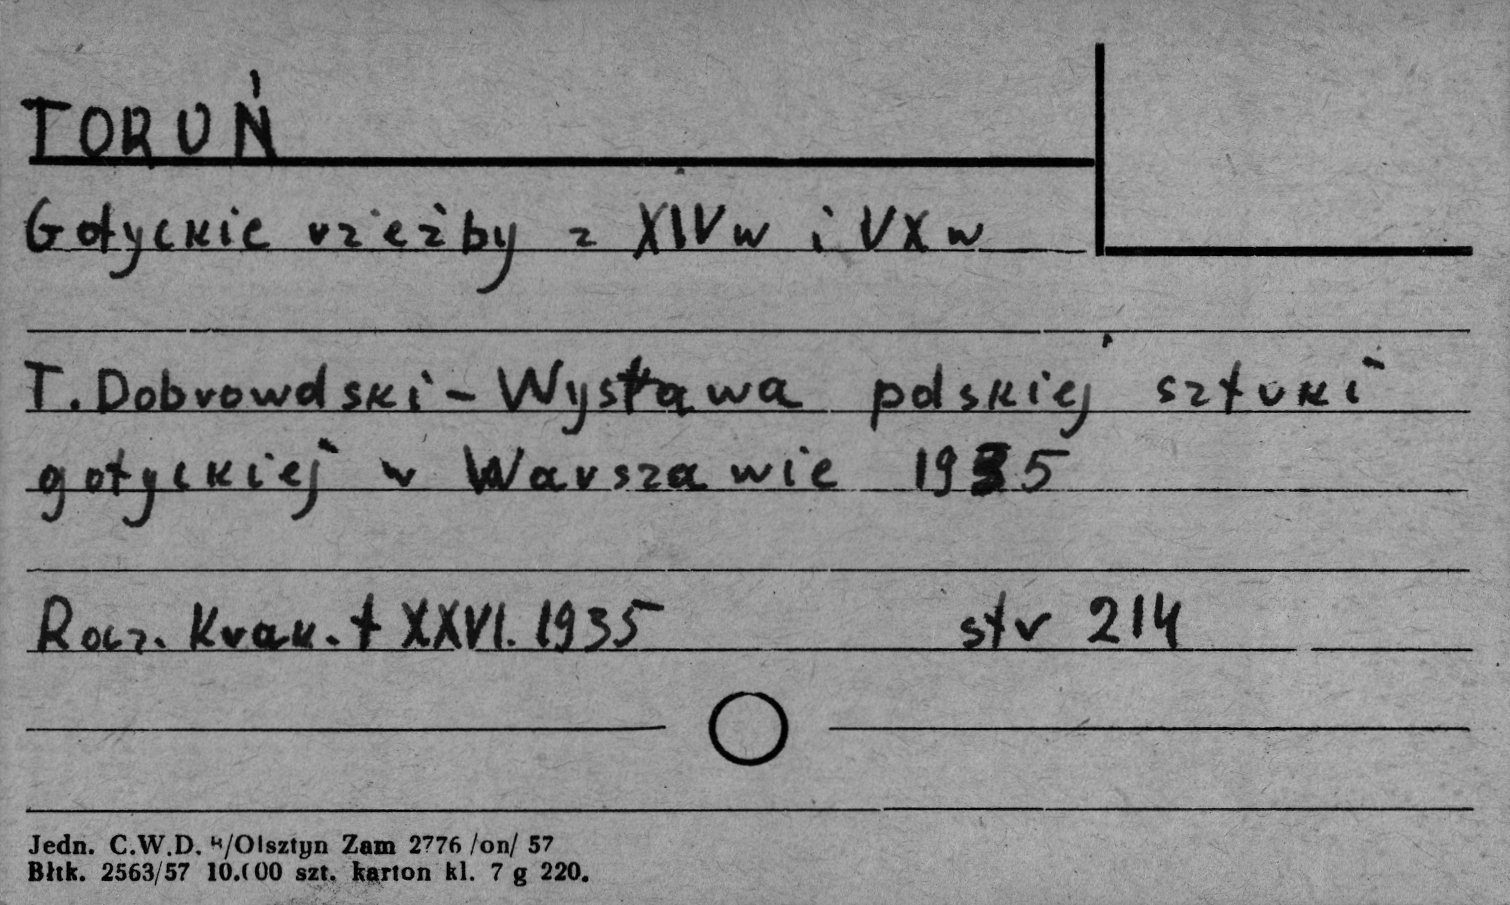 TORUŃ
Gotyckie rzeźby z XIVw i VXw
T. Dobrowolski - Wystawa polskiej sztuki
gotyckiej w Warszawie 1935
Rocz. Krak. t XXVI. 1935 str 214
Jedn. C.W.D. /Olsztyn Zam 2776 /on/ 57
Błtk. 2563/57 10.000 szt. karton kl. 7 g 220.